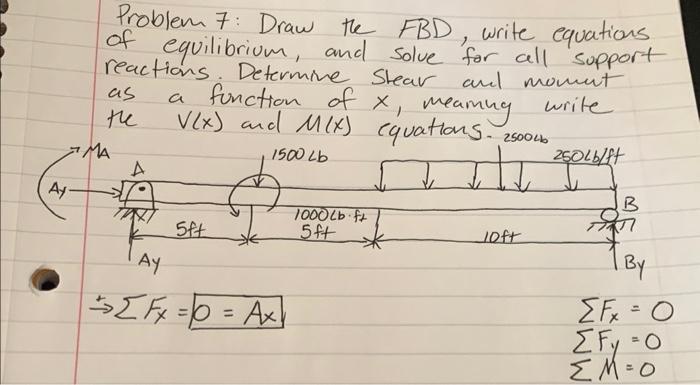 Problem 7: Draw the FBD, write equations
of equilibrium, and solve for all support
reactions. Determine Shear and moment
as a function of x, meaning write
the V(x) and M(x) equations.
2500Lb
MA
A
1500 Lb
250Lb/ft
Ay
B
5ft
1000Lb·ft
5ft
10ft
Ay
By
ΣFx = 0 = Ax
ΣFx = 0
ΣFy = 0
ΣM = 0